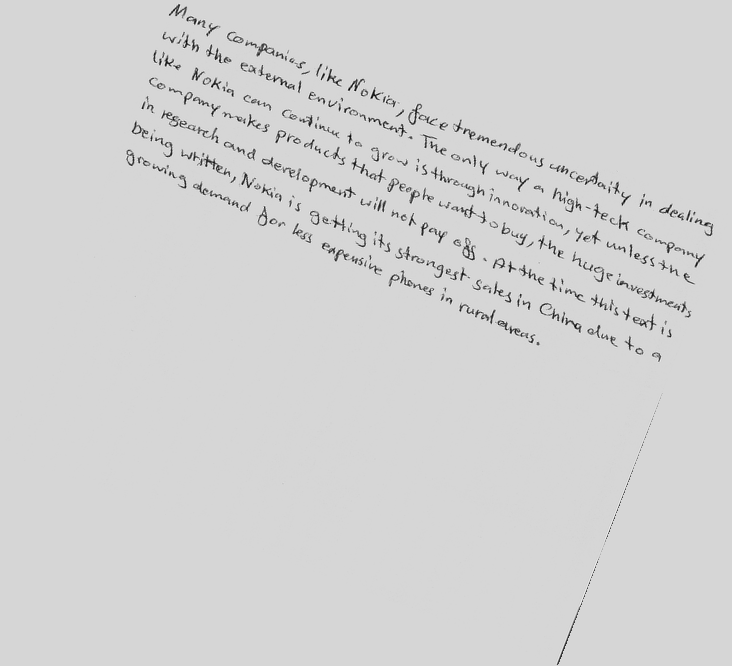 Many companies, like Nokia, face tremendous uncertaity in dealing
with the external environment. The only way a high-tech company
like Nokia can continue to grow is through innovation, yet unless the
company makes products that people want to buy, the huge investments
in research and development will not pay off. At the time this text is
being written, Nokia is getting its strongest sales in China due to a
growing demand for less expensive phones in rural areas.